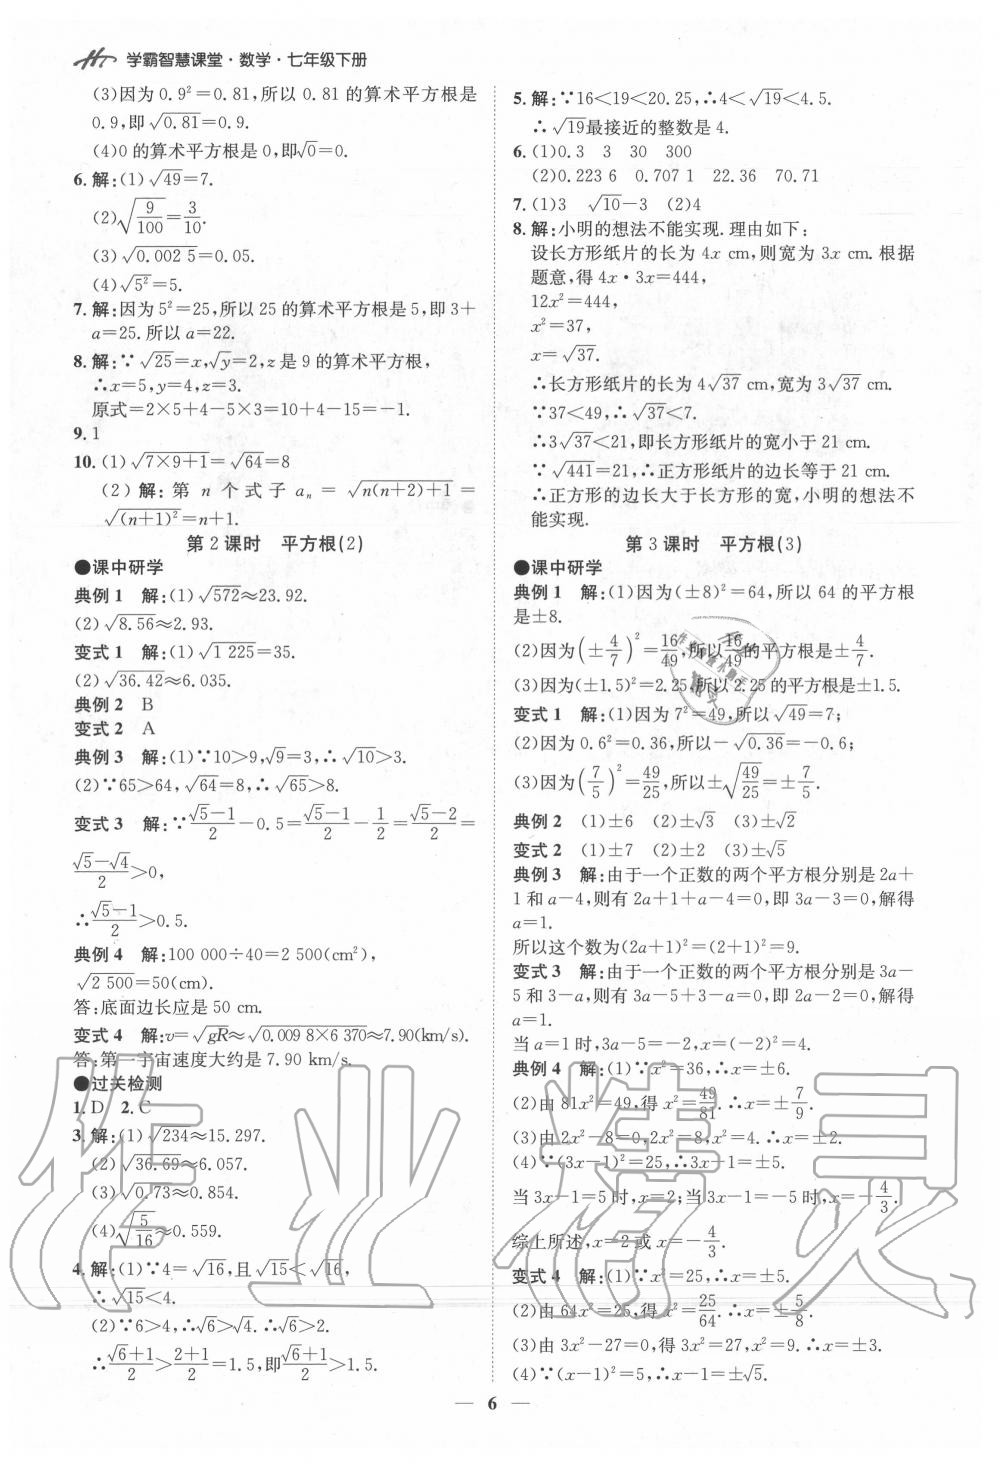 学霸智慧课堂·数学·七年级下册
(3)因为 0.9²=0.81,所以 0.81 的算术平方根是
0.9,即√0.81=0.9.
(4)0 的算术平方根是 0,即√0=0.
6. 解:(1)√49=7.
(2)√(9/100)=3/10.
(3)√0.002 5=0.05.
(4)√5²=5.
7. 解:因为 5²=25,所以 25 的算术平方根是 5,即 3+
a=25.所以 a=22.
8. 解:∵√25=x,√y=2,z 是 9 的算术平方根,
∴x=5,y=4,z=3.
原式=2×5+4-5×3=10+4-15=-1.
9. 1
10. (1)√(7×9+1)=√64=8
(2) 解: 第 n 个式子 aₙ = √(n(n+2)+1) =
√(n+1)²=n+1.
第 2 课时 平方根(2)
●课中研学
典例 1 解:(1)√572≈23.92.
(2)√8.56≈2.93.
变式 1 解:(1)√1 225=35.
(2)√36.42≈6.035.
典例 2 B
变式 2 A
典例 3 解:(1)∵10>9,√9=3,∴√10>3.
(2)∵65>64,√64=8,∴√65>8.
变式 3 解:∵(√5-1)/2-0.5=(√5-1)/2-1/2=(√5-2)/2=
(√5-√4)/2>0,
∴(√5-1)/2>0.5.
典例 4 解:100 000÷40=2 500(cm²),
√2 500=50(cm).
答:底面边长应是 50 cm.
变式 4 解:v=√gR≈√(0.009 8×6 370)≈7.90(km/s).
答:第一宇宙速度大约是 7.90 km/s.
●过关检测
1. D 2. C
3. 解:(1)√234≈15.297.
(2)√36.69≈6.057.
(3)√0.73≈0.854.
(4)√(5/16)≈0.559.
4. 解:(1)∵4=√16,且√15<√16,
∴√15<4.
(2)∵6>4,∴√6>√4.∴√6>2.
∴(√6+1)/2>(2+1)/2=1.5,即(√6+1)/2>1.5.
5. 解:∵16<19<20.25,∴4<√19<4.5.
∴√19最接近的整数是 4.
6. (1)0.3 3 30 300
(2)0.223 6 0.707 1 22.36 70.71
7. (1)3 √10-3 (2)4
8. 解:小明的想法不能实现.理由如下:
设长方形纸片的长为 4x cm,则宽为 3x cm.根据
题意,得 4x·3x=444,
12x²=444,
x²=37,
x=√37.
∴长方形纸片的长为 4√37 cm,宽为 3√37 cm.
∵37<49,∴√37<7.
∴3√37<21,即长方形纸片的宽小于 21 cm.
∵√441=21,∴正方形纸片的边长等于 21 cm.
∴正方形的边长大于长方形的宽,小明的想法不
能实现.
第 3 课时 平方根(3)
●课中研学
典例 1 解:(1)因为(±8)²=64,所以 64 的平方根
是±8.
(2)因为(±4/7)²=16/49,所以16/49的平方根是±4/7.
(3)因为(±1.5)²=2.25,所以 2.25 的平方根是±1.5.
变式 1 解:(1)因为 7²=49,所以√49=7;
(2)因为 0.6²=0.36,所以-√0.36=-0.6;
(3)因为(7/5)²=49/25,所以±√(49/25)=±7/5.
典例 2 (1)±6 (2)±√3 (3)±√2
变式 2 (1)±7 (2)±2 (3)±√5
典例 3 解:由于一个正数的两个平方根分别是 2a+
1 和 a-4,则有 2a+1+a-4=0,即 3a-3=0,解得
a=1.
所以这个数为(2a+1)²=(2+1)²=9.
变式 3 解:由于一个正数的两个平方根分别是 3a-
5 和 3-a,则有 3a-5+3-a=0,即 2a-2=0,解得
a=1.
当 a=1 时,3a-5=-2,x=(-2)²=4.
典例 4 解:(1)∵x²=36,∴x=±6.
(2)由 81x²=49,得 x²=49/81.∴x=±7/9.
(3)由 2x²-8=0,2x²=8,x²=4.∴x=±2.
(4)∵(3x-1)²=25,∴3x-1=±5.
当 3x-1=5 时,x=2;当 3x-1=-5 时,x=-4/3.
综上所述,x=2 或 x=-4/3.
变式 4 解:(1)∵x²=25,∴x=±5.
(2)由 64x²=25,得 x²=25/64.∴x=±5/8.
(3)由 3x²-27=0,得 3x²=27,x²=9.∴x=±3.
(4)∵(x-1)²=5,∴x-1=±√5.
— 6 —
作业精灵